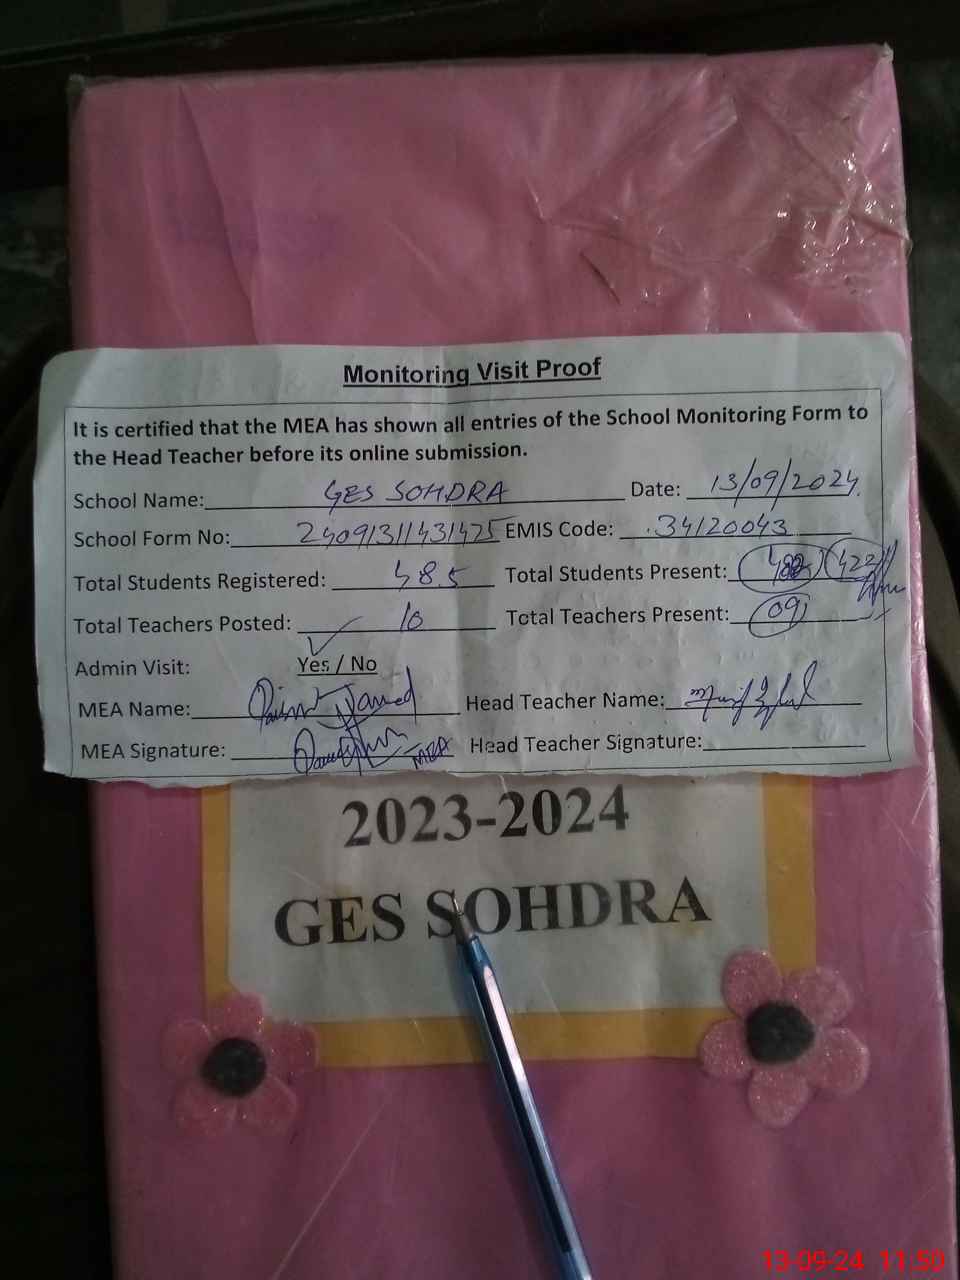 Monitoring Visit Proof
It is certified that the MEA has shown all entries of the School Monitoring Form to
the Head Teacher before its online submission.
School Name: GES SOHDRA Date: 13/09/2024
School Form No: 2409131143 1475 EMIS Code: 34120043
Total Students Registered: 485 Total Students Present: 422
Total Teachers Posted: 10 Total Teachers Present: 09
Admin Visit: Yes / No
MEA Name: Head Teacher Name:
MEA Signature: MEA Head Teacher Signature:
2023-2024
GES SOHDRA
13-09-24 11:50